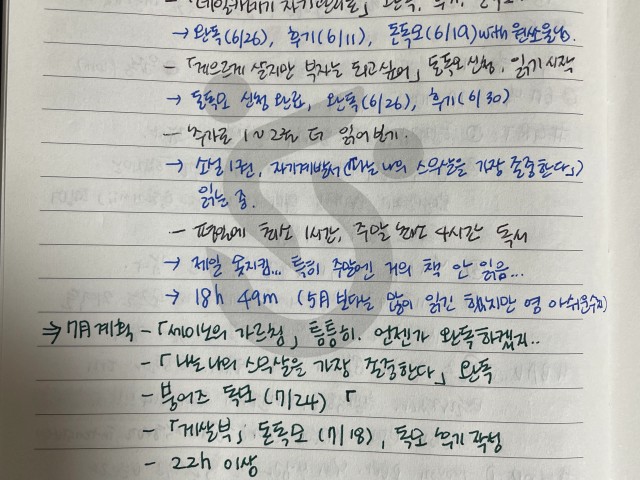 - 「데일카네기 자기관리론」 완독, 후기,
→ 완독(6/26), 후기(6/11), 돈독모(6/19) with 원쏘울님.
- 「게으르게 살지만 부자는 되고싶어」 돈독모 신청, 읽기 시작
→ 돈독모 신청 완료, 완독(6/26), 후기(6/30)
- 추가로 1~2권 더 읽어보기.
→ 소설 1권, 자기계발서 (「나는 나의 스무살을 가장 존중한다」)
읽는 중.
- 평일에 최소 1시간, 주말 최소 4시간 독서
→ 제일 못지킴... 특히 주말엔 거의 책 안 읽음...
→ 18h 49m (5月보다는 많이 읽긴 했지만 영 아쉬운 수치)
⇒ 7月계획 - 「세이노의 가르침」 틈틈히. 언젠가 완독하겠지..
- 「나는 나의 스무살을 가장 존중한다」 완독
- 붕어즈 독모 (7/24) 「
- 「게살부」 돈독모 (7/18), 독모 후기 작성
- 22h 이상